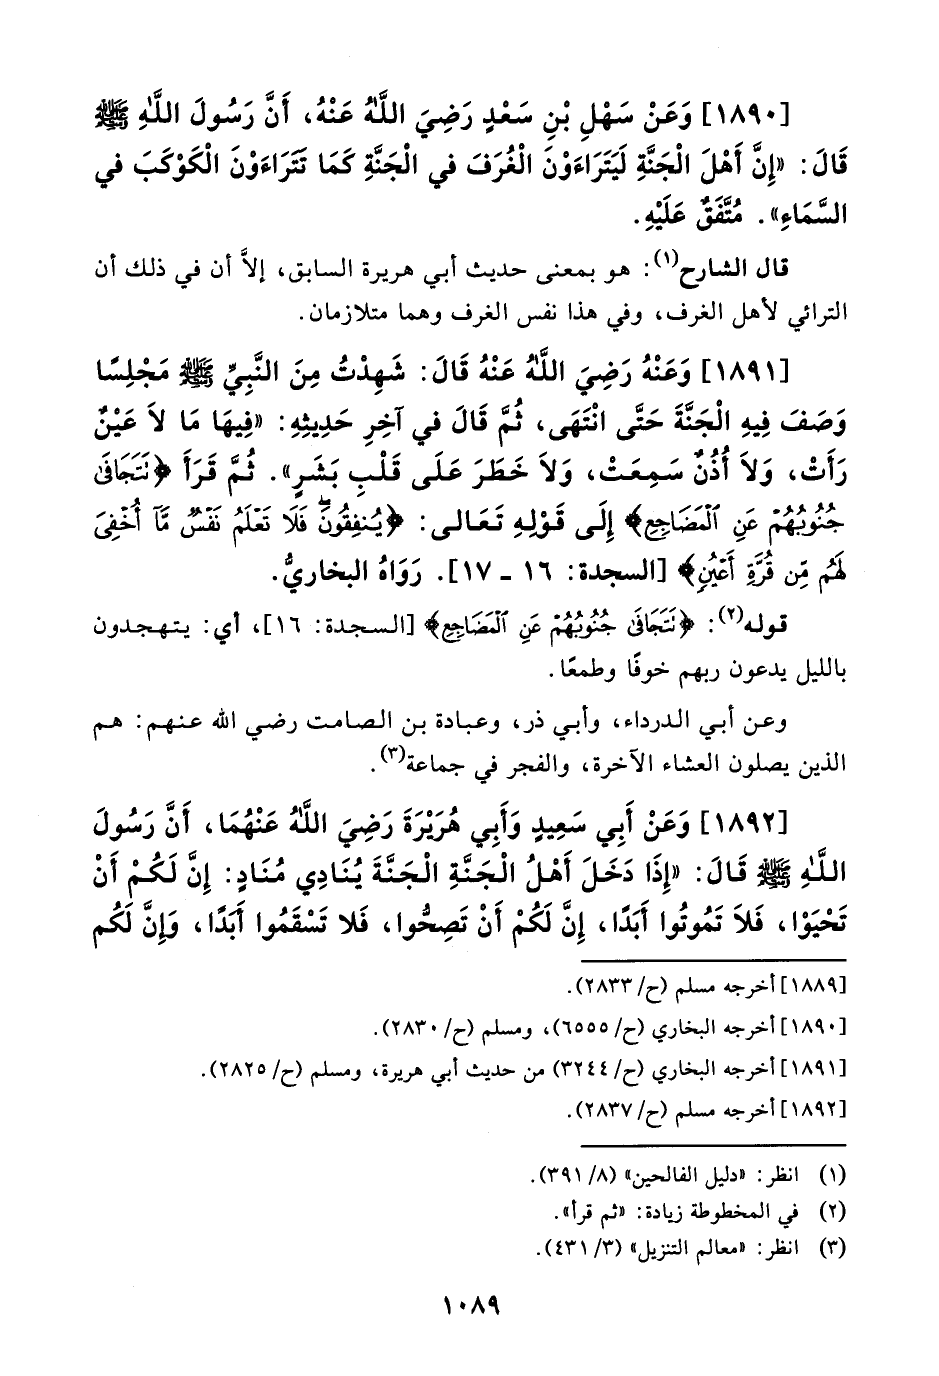 [١٨٩٠] وَعَنْ سَهْلِ بْنِ سَعْدٍ رَضِيَ اللَّهُ عَنْهُ، أَنَّ رَسُولَ اللَّهِ ﷺ
قَالَ: «إِنَّ أَهْلَ الْجَنَّةِ لَيَتَرَاءَوْنَ الْغُرَفَ في الْجَنَّةِ كَمَا تَتَرَاءَوْنَ الْكَوْكَبَ في
السَّمَاءِ». مُتَّفَقٌ عَلَيْهِ.
قال الشارح(١): هو بمعنى حديث أبي هريرة السابق، إلاَّ أن في ذلك أن
الترائي لأهل الغرف، وفي هذا نفس الغرف وهما متلازمان.
[١٨٩١] وَعَنْهُ رَضِيَ اللَّهُ عَنْهُ قَالَ: شَهِدْتُ مِنَ النَّبِيِّ ﷺ مَجْلِسًا
وَصَفَ فِيهِ الْجَنَّةَ حَتَّى انْتَهَى، ثُمَّ قَالَ في آخِرِ حَدِيثِهِ: «فِيهَا مَا لاَ عَيْنٌ
رَأَتْ، وَلاَ أُذُنٌ سَمِعَتْ، وَلاَ خَطَرَ عَلَى قَلْبِ بَشَرٍ». ثُمَّ قَرَأَ ﴿نَتَجَافَىٰ
جُنُوبُهُمْ عَنِ ٱلْمَضَاجِعِ﴾ إِلَى قَوْلِهِ تَعَالى: ﴿يُنفِقُونَ ۖ فَلَا تَعْلَمُ نَفْسٌ مَّآ أُخْفِيَ
لَهُم مِّن قُرَّةِ أَعْيُنٍ﴾ [السجدة: ١٦ - ١٧]. رَوَاهُ البخاريُّ.
قوله(٢): ﴿نَتَجَافَىٰ جُنُوبُهُمْ عَنِ ٱلْمَضَاجِعِ﴾ [السجدة: ١٦]، أي: يتهجدون
بالليل يدعون ربهم خوفًا وطمعًا.
وعن أبي الدرداء، وأبي ذر، وعبادة بن الصامت رضي الله عنهم: هم
الذين يصلون العشاء الآخرة، والفجر في جماعة(٣).
[١٨٩٢] وَعَنْ أَبِي سَعِيدٍ وَأَبِي هُرَيْرَةَ رَضِيَ اللَّهُ عَنْهُمَا، أَنَّ رَسُولَ
اللَّهِ ﷺ قَالَ: «إِذَا دَخَلَ أَهْلُ الْجَنَّةِ الْجَنَّةَ يُنَادِي مُنَادٍ: إِنَّ لَكُمْ أَنْ
تَحْيَوْا، فَلاَ تَمُوتُوا أَبَدًا، إِنَّ لَكُمْ أَنْ تَصِحُّوا، فَلا تَسْقَمُوا أَبَدًا، وَإِنَّ لَكُم
[١٨٨٩] أخرجه مسلم (ح/ ٢٨٣٣).
[١٨٩٠] أخرجه البخاري (ح/ ٦٥٥٥)، ومسلم (ح/ ٢٨٣٠).
[١٨٩١] أخرجه البخاري (ح/ ٣٢٤٤) من حديث أبي هريرة، ومسلم (ح/ ٢٨٢٥).
[١٨٩٢] أخرجه مسلم (ح/ ٢٨٣٧).
(١) انظر: «دليل الفالحين» (٨/ ٣٩١).
(٢) في المخطوطة زيادة: «ثم قرأ».
(٣) انظر: «معالم التنزيل» (٣/ ٤٣١).
١٠٨٩